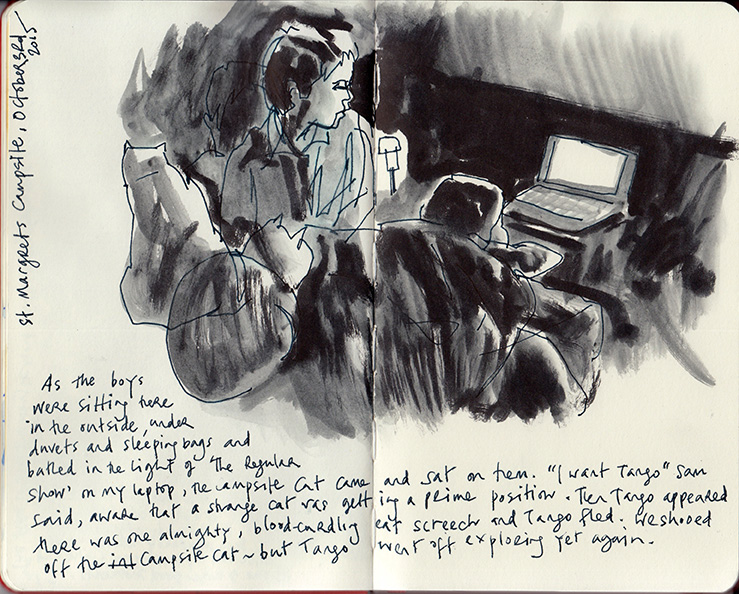 St. Margrets Campsite, October 3rd 2015
As the boys
were sitting here
in the outside, under
duvets and sleeping bags and
bathed in the light of 'The Regular
Show' on my laptop, the campsite cat came and sat on them. "I want Tango" Sam
said, aware that a strange cat was getting a prime position. Then Tango appeared
there was one almighty, blood-curdling cat screech and Tango fled. We shooed
off the Campsite Cat ~ but Tango went off exploring yet again.